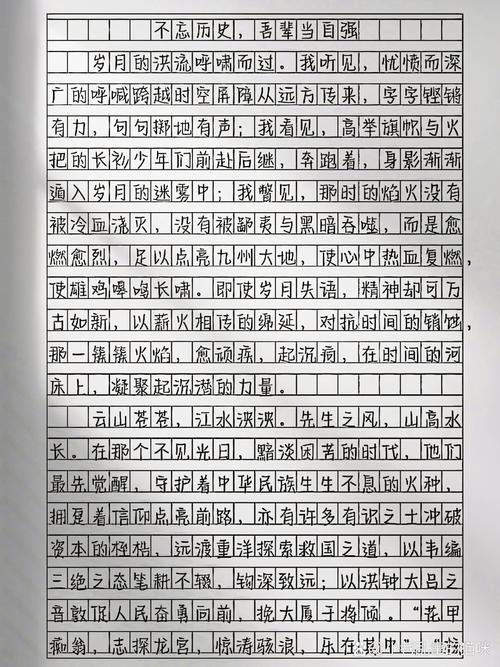 不忘历史，吾辈当自强
岁月的洪流呼啸而过。我听见，忧愤而深
广的呼喊跨越时空屏障从远方传来，字字铿锵
有力，句句掷地有声；我看见，高举旗帜与火
把的长衫少年们前赴后继，奔跑着，身影渐渐
遁入岁月的迷雾中；我瞥见，那时的焰火没有
被冷血浇灭，没有被鄙夷与黑暗吞噬，而是愈
燃愈烈，足以点亮九州大地，使心中热血复燃，
使雄鸡嗥鸣长啸。即使岁月失语，精神却可万
古如新，以薪火相传的绵延，对抗时间的销蚀，
那一簇簇火焰，愈顽疾，起沉疴，在时间的河
床上，凝聚起沉潜的力量。
云山苍苍，江水泱泱。先生之风，山高水
长。在那个不见光日，黯淡困苦的时代，他们
最先觉醒，守护着中华民族生生不息的火种，
拥趸着信仰点亮前路，亦有许多有识之士冲破
资本的桎梏，远渡重洋探索救国之道，以韦编
三绝之态笔耕不辍，钩深致远；以洪钟大吕之
音敦促人民奋勇向前，挽大厦于将倾。“花甲
痴翁，志探龙宫，惊涛骇浪，乐在其中”“